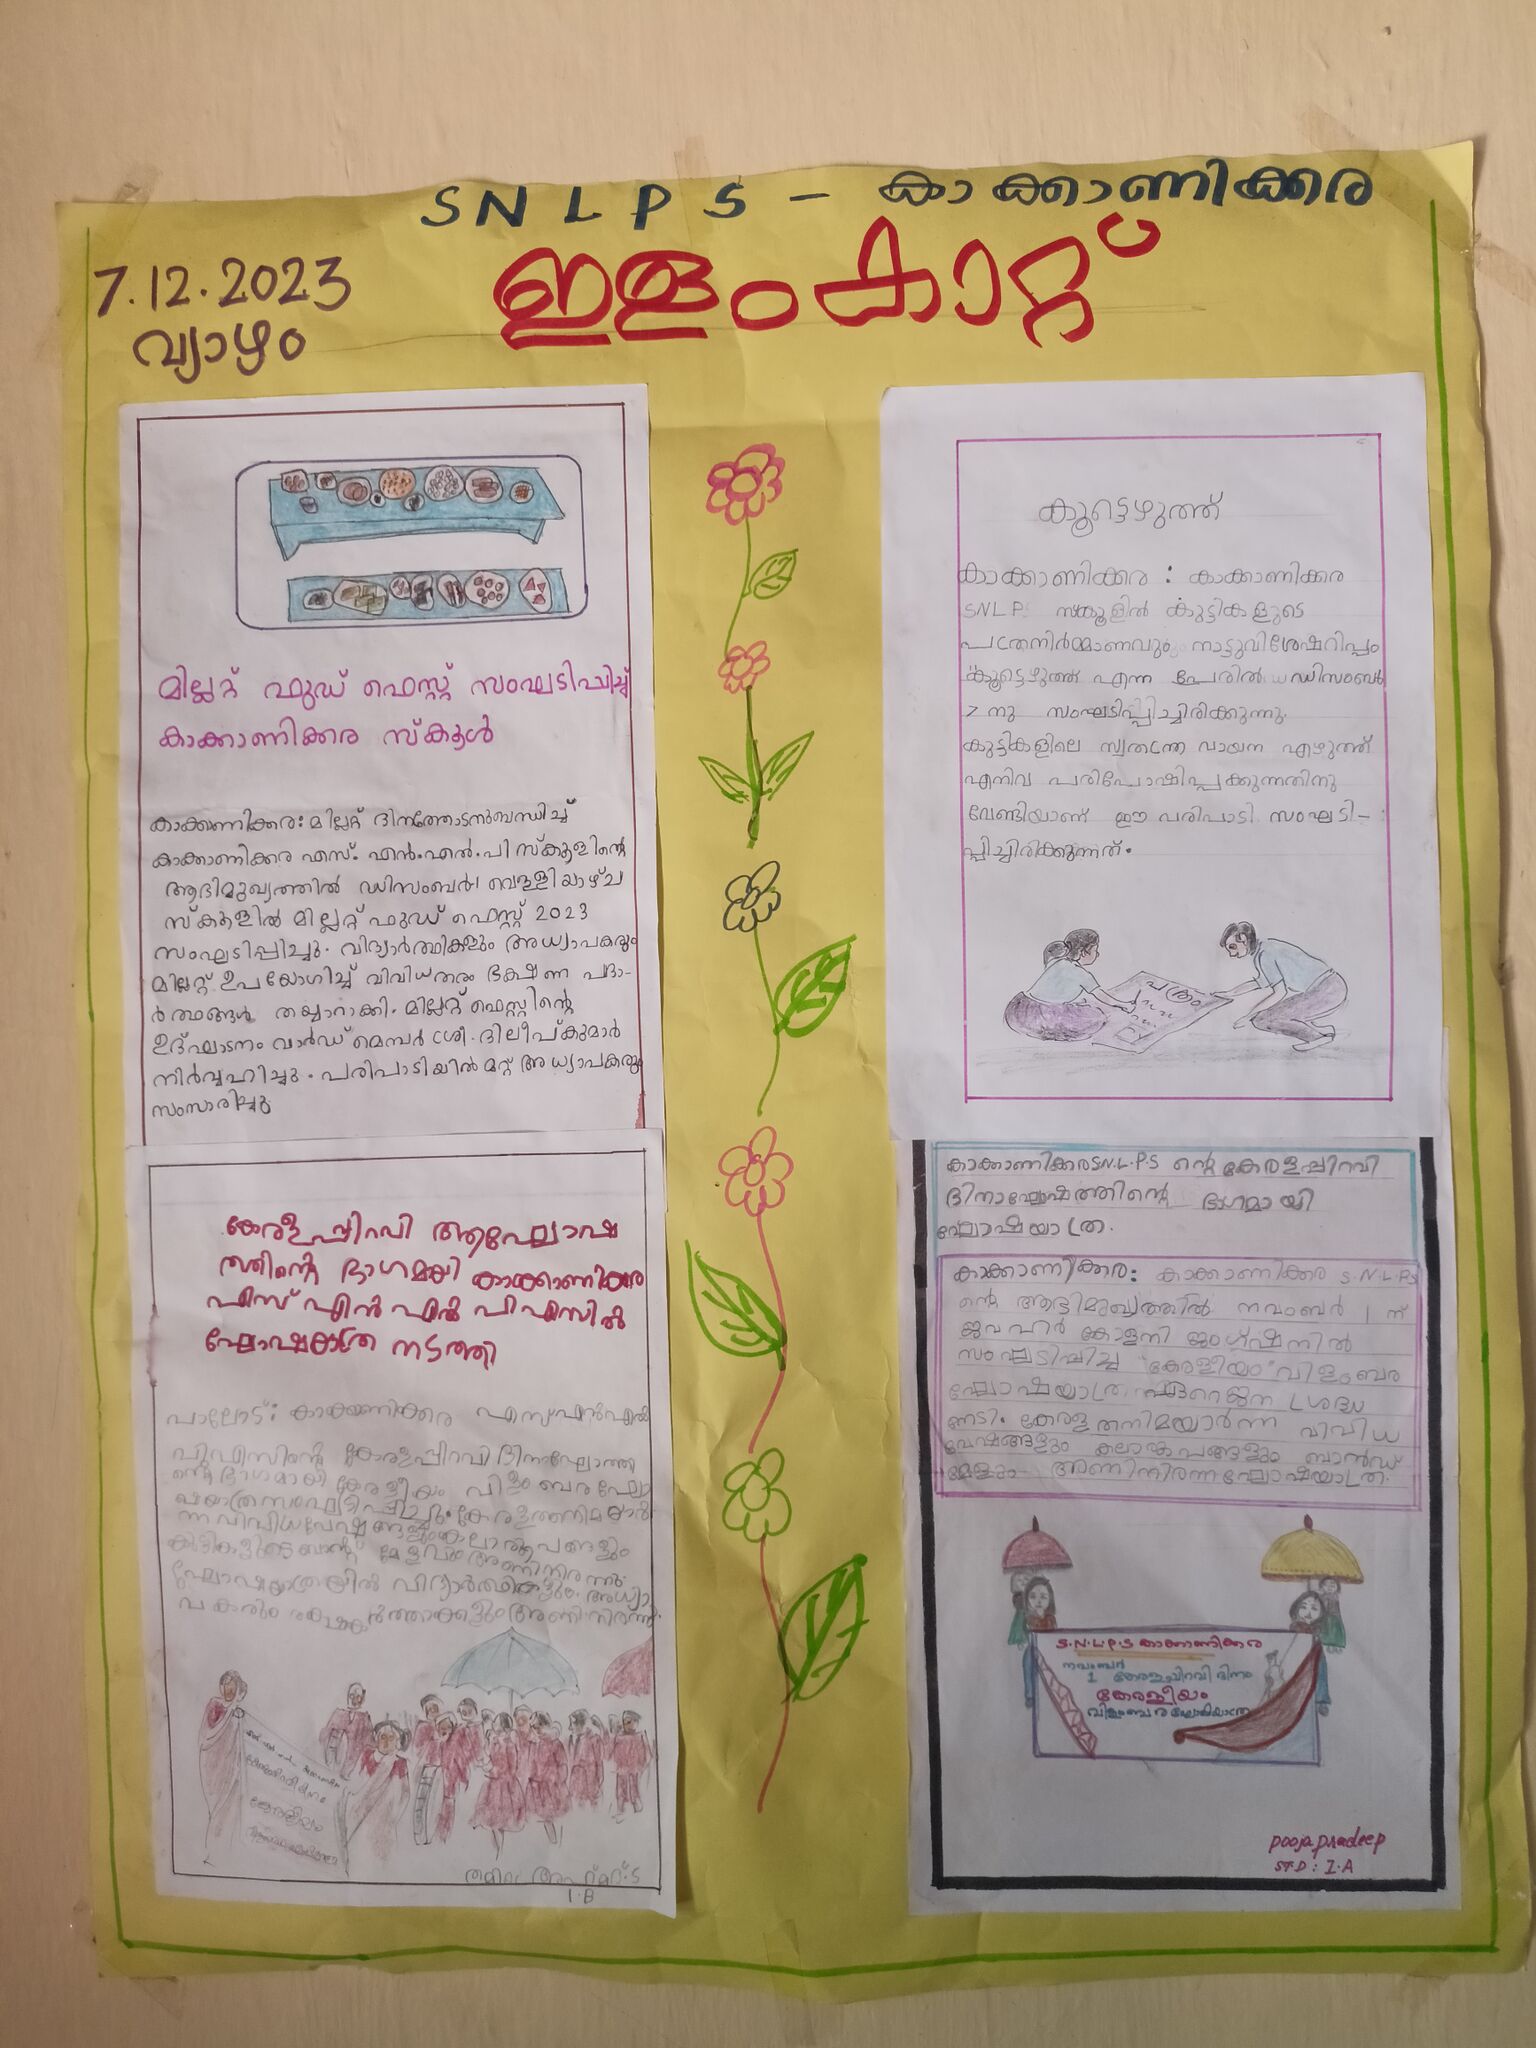 SNLPS - കാക്കാണിക്കര
ഇളംകാറ്റ്
7.12.2023
വ്യാഴം
മില്ലറ്റ് ഫുഡ് ഫെസ്റ്റ് സംഘടിപ്പിച്ച്
കാക്കാണിക്കര സ്കൂൾ
കാക്കാണിക്കര: മില്ലറ്റ് ദിനത്തോടനുബന്ധിച്ച്
കാക്കാണിക്കര എസ്. എൻ. എൽ. പി സ്കൂളിന്റെ
ആഭിമുഖ്യത്തിൽ ഡിസംബർ 1 വെള്ളിയാഴ്ച
സ്കൂളിൽ മില്ലറ്റ് ഫുഡ് ഫെസ്റ്റ് 2023
സംഘടിപ്പിച്ചു. വിദ്യാർത്ഥികളും അധ്യാപകരും
മില്ലറ്റ് ഉപയോഗിച്ച് വിവിധതരം ഭക്ഷണ പദാ-
ർത്ഥങ്ങൾ തയ്യാറാക്കി. മില്ലറ്റ് ഫെസ്റ്റിന്റെ
ഉദ്ഘാടനം വാർഡ് മെമ്പർ ശ്രീ. ദിലീപ് കുമാർ
നിർവ്വഹിച്ചു. പരിപാടിയിൽ മറ്റ് അധ്യാപകരും
സംസാരിച്ചു
കേരളപ്പിറവി ആഘോഷ
ത്തിന്റെ ഭാഗമായി കാക്കാണിക്കര
എസ് എൻ എൽ പി എസിൽ
ഘോഷയാത്ര നടത്തി
പാലോട്: കാക്കാണിക്കര എസ്എൻഎൽ
പിഎസിന്റെ കേരളപ്പിറവി ദിനാഘോഷ
ന്റെ ഭാഗമായി കേരളീയം വിളംബര ഘോ
ഷയാത്ര സംഘടിപ്പിച്ചു. കേരളത്തനിമയാർ
ന്ന വിവിധ വേഷങ്ങളും കലാരൂപങ്ങളും
കുട്ടികളുടെ ബാന്റ് മേളവും അണിനിരന്നു.
ഘോഷയാത്രയിൽ വിദ്യാർത്ഥികളും അധ്യാ
പകരും രക്ഷകർത്താക്കളും അണിനിരന്നു.
കേരളീയം
1.B
കൂട്ടെഴുത്ത്
കാക്കാണിക്കര : കാക്കാണിക്കര
SNLP സ്കൂളിൽ കുട്ടികളുടെ
പത്രനിർമ്മാണവും നാട്ടുവിശേഷറിപ്പും
കൂട്ടെഴുത്ത് എന്ന പേരിൽ ഡിസംബർ
7 നു സംഘടിപ്പിച്ചിരിക്കുന്നു.
കുട്ടികളിലെ സ്വതന്ത്ര വായന എഴുത്ത്
എന്നിവ പരിപോഷിപ്പിക്കുന്നതിനു
വേണ്ടിയാണ് ഈ പരിപാടി സംഘടി-
പ്പിച്ചിരിക്കുന്നത്.
പത്രം
കാക്കാണിക്കര S.N.L.P.S ന്റെ കേരളപ്പിറവി
ദിനാഘോഷത്തിന്റെ ഭാഗമായി
ഘോഷയാത്ര.
കാക്കാണിക്കര: കാക്കാണിക്കര S.N.L.P.S
ന്റെ ആഭിമുഖ്യത്തിൽ നവംബർ 1 ന്
ജവഹർ കോളനി ജംഗ്ഷനിൽ
സംഘടിപ്പിച്ച "കേരളീയം" വിളംബര
ഘോഷയാത്ര ഏറെ ജന ശ്രദ്ധ
നേടി. കേരള തനിമയാർന്ന വിവിധ
വേഷങ്ങളും കലാരൂപങ്ങളും ബാൻഡ്
മേളവും അണിനിരന്ന ഘോഷയാത്ര.
S.N.L.P.S കാക്കാണിക്കര
നവംബർ
1 കേരളപ്പിറവി ദിനം
കേരളീയം
വിളംബര ഘോഷയാത്ര
pooja pradeep
STD : I.A